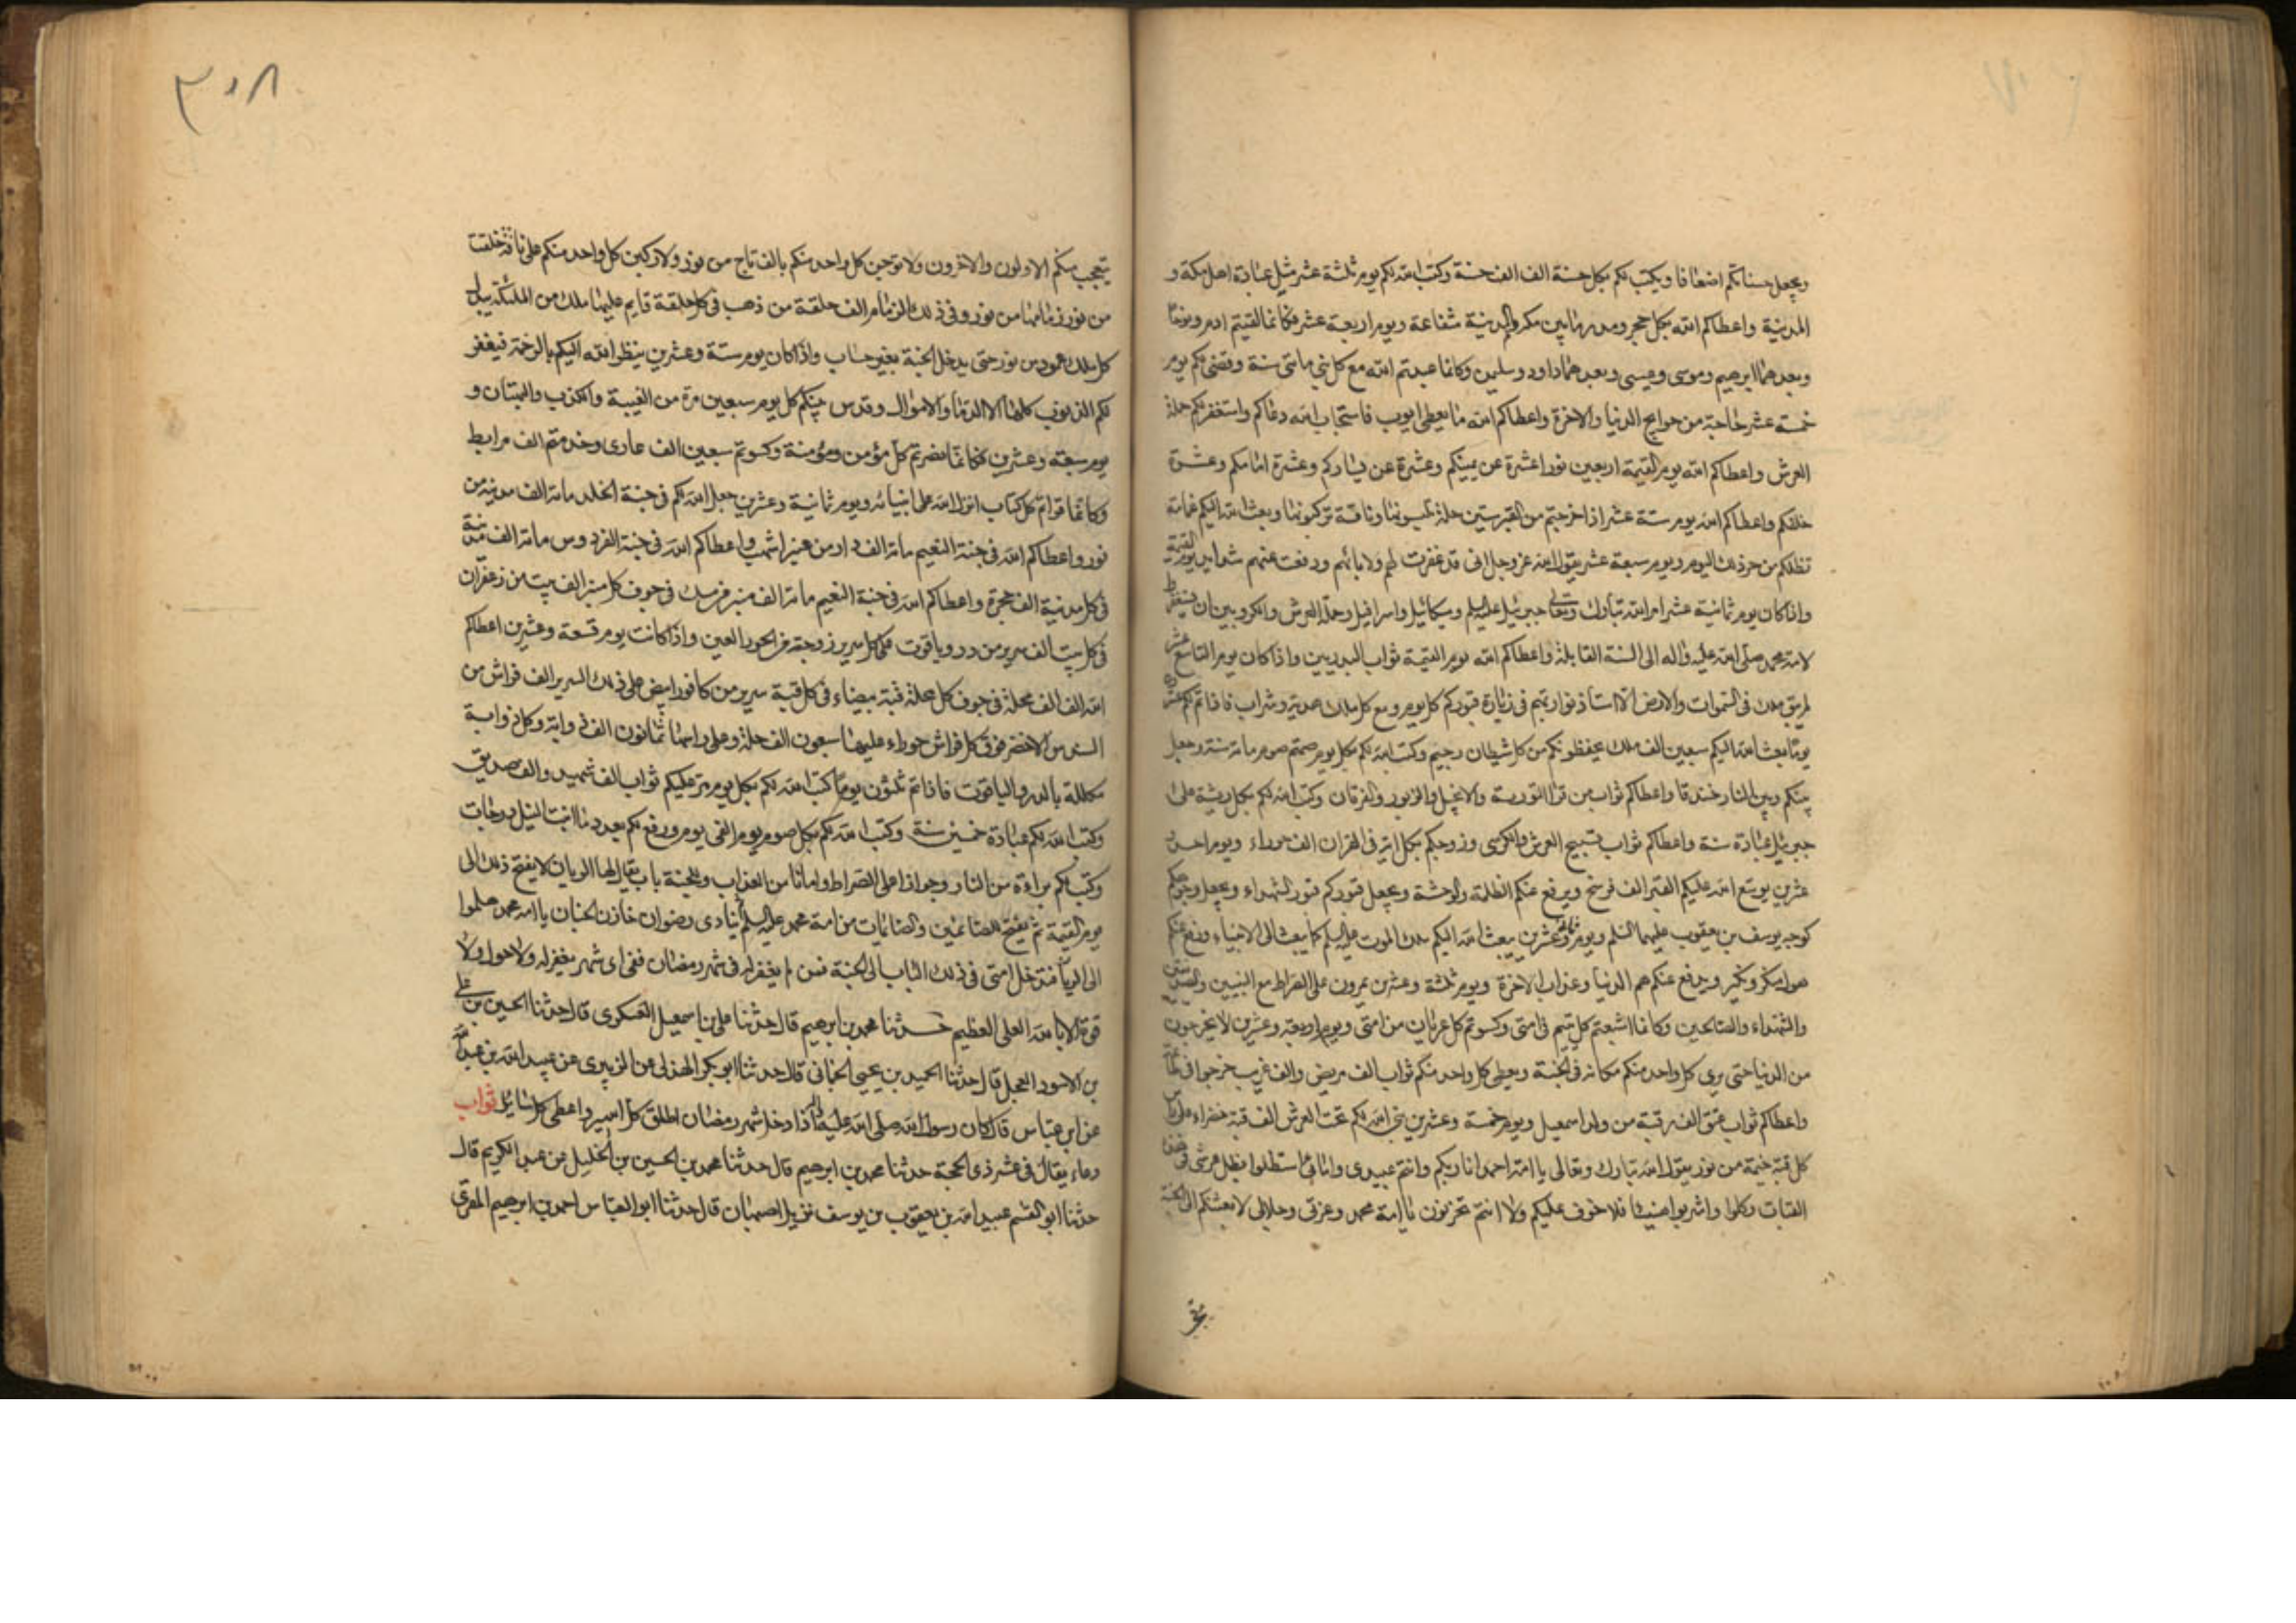 ويجعل حسناتكم اضعافا ويكتب لكم بكل حسنة الف الف حسنة وكتب الله لكم يوم ثلثة عشر مثل عبادة اهل مكة و
المدينة واعطاكم الله بكل حجر ومدر مابين مكة والمدينة شفاعة ويوم اربعة عشر فكانما لقيتم ادم ونوحا
وبعدهما ابرهيم وموسى وعيسى وبعدهما داود وسليمن وكانما عبدتم الله مع كل نبي مائتى سنة وقضى لكم يوم
خمسة عشر حاجة من حوايج الدنيا والاخرة واعطاكم الله ما يعطى ايوب فاستجاب الله دعاكم واستغفر لكم حملة
العرش واعطاكم الله يوم القيمة اربعين نورا عشرة عن يمينكم وعشرة عن يساركم وعشرة امامكم وعشرة
خلفكم واعطاكم الله يوم ستة عشر اذا خرجتم من القبر ستين حلة تلبسونها وناقة تركبونها وبعث الله اليكم غمامة
تظلكم من حر ذلك اليوم ويوم سبعة عشر يقول الله عز وجل انى قد غفرت لهم ولابائهم ورفعت عنهم شدايد يوم القيمة
واذا كان يوم ثمانية عشر امر الله تبارك وتعالى جبرئيل عليه السلم وميكائيل واسرافيل وحملة العرش والكروبيين ان يستغفروا
لامة محمد صلى الله عليه واله الى السنة القابلة واعطاكم الله يوم القيمة ثواب البدريين واذا كان يوم التاسع عشر
لم يبق ملك فى السموات والارض الا استاذنوا ربهم فى زيارة قبوركم كل يوم ومع كل ملك هدية وشراب فاذا تم لكم عشرون
يوما بعث الله اليكم سبعين الف ملك يحفظونكم من كل شيطان رجيم وكتب الله لكم بكل يوم صمتم صوم مائة سنة وجعل
بينكم وبين النار خندقا واعطاكم ثواب من قرا التورية والانجيل والزبور والفرقان وكتب الله لكم بكل ريشة على
جبرئيل عبادة سنة واعطاكم ثواب تسبيح العرش والكرسى وزوجكم بكل اية فى القران الف حوراء ويوم احد و
عشرين يوسع الله عليكم القبر الف فرسخ ويرفع عنكم الظلمة والوحشة ويجعل قبوركم كقبور الشهداء ويجعل وجوهكم
كوجه يوسف بن يعقوب عليهما السلم ويوم اثنين وعشرين يبعث الله اليكم ملك الموت عليه السلم كما يبعث الى الانبياء ورفع عنكم
هول منكر ونكير ويدفع عنكم هم الدنيا وعذاب الاخرة ويوم ثلثة وعشرين تمرون على الصراط مع النبيين والصديقين
والشهداء والصالحين وكانما اشبعتم كل يتيم فى امتى وكسوتم كل عريان من امتى ويوم اربعة وعشرين لا يخرجون
من الدنيا حتى يرى كل واحد منكم مكانه فى الجنة ويعطى كل واحد منكم ثواب الف مريض والف غريب خرجوا فى طاعة الله
واعطاكم ثواب عتق الف رقبة من ولد اسمعيل ويوم خمسة وعشرين بنى الله لكم تحت العرش الف قبة خضراء على راس
كل قبة خيمة من نور يقول الله تبارك وتعالى يا امة احمد انا ربكم وانتم عبيدى وامائى استظلوا بظل عرشى فى هذه
القباب وكلوا واشربوا هنيئا فلا خوف عليكم ولا انتم تحزنون يا امة محمد وعزتى وجلالى لابعثنكم الى الجنة
٣٠٨
يتعجب منكم الاولون والاخرون ولاتوجن كل واحد منكم بالف تاج من نور ولاركبن كل واحد منكم على ناقة خلقت
من نور زمامها من نور وفى ذلك الزمام الف حلقة من ذهب فى كل حلقة قايم عليها ملك من الملئكة بيد
كل ملك عمود من نور حتى يدخل الجنة بغير حساب واذا كان يوم ستة وعشرين ينظر الله اليكم بالرحمة فيغفر
لكم الذنوب كلها الا الدماء والاموال وقدس بينكم كل يوم سبعين مرة من الغيبة والكذب والبهتان و
يوم سبعة وعشرين فكانما نصرتم كل مؤمن ومؤمنة وكسوتم سبعين الف عارى وخدمتم الف مرابط
وكانما قراتم كل كتاب انزل الله على انبيائه ويوم ثمانية وعشرين جعل الله لكم فى جنة الخلد مائة الف مدينة من
نور واعطاكم الله فى جنة النعيم مائة الف دار من عنبر اشهب واعطاكم الله فى جنة الفردوس مائة الف مدينة
فى كل مدينة الف حجرة واعطاكم الله فى جنة النعيم مائة الف منبر من مسك فى جوف كل منبر الف بيت من زعفران
فى كل بيت الف سرير من در وياقوت على كل سرير زوجة من الحور العين واذا كانت يوم تسعة وعشرين اعطاكم
الله الف الف محلة فى جوف كل محلة قبة بيضاء فى كل قبة سرير من كافور ابيض على ذلك السرير الف فراش من
السندس الاخضر فوق كل فراش حوراء عليها سبعون الف حلة وعلى راسها ثمانون الف ذوابة وكل ذوابة
مكللة بالدر والياقوت فاذا تم ثلثون يوما كتب الله لكم بكل يوم مر عليكم ثواب الف شهيد والف صديق
وكتب الله لكم عبادة خمسين سنة وكتب الله لكم بكل صوم يوم الفى يوم ورفع لكم بعدد ما انبت النيل درجات
وكتب لكم براءة من النار وجوازا على الصراط وامانا من العذاب وللجنة باب يقال لها الريان لا يفتح ذلك الى
يوم القيمة ثم يفتح للصائمين والصائمات من امة محمد عليه السلم ينادى رضوان خازن الجنان يا امة محمد هلموا
الى الريان فتدخل امتى فى ذلك الباب الى الجنة فمن لم يغفر له فى شهر رمضان ففى اى شهر يغفر له ولا حول ولا
قوة الا بالله العلى العظيم حدثنا محمد بن ابرهيم قال حدثنا على بن اسمعيل العسكرى قال حدثنا الحسين بن على
بن الاسود العجلى قال حدثنا الحميد بن يحيى الحمانى قال حدثنا ابو بكر الهذلى عن الزبيرى عن عبيد الله بن عبد الله
عن ابن عباس قال كان رسول الله صلى الله عليه واله اذا دخل شهر رمضان اطلق كل اسير واعطى كل سائل ثواب
دعاء يقال فى عشر ذى الحجة حدثنا محمد بن ابرهيم قال حدثنا محمد بن الحسين بن الخليل عن عبد الكريم قال
حدثنا ابو القسم عبيد الله بن يعقوب بن يوسف نزيل اصبهان قال حدثنا ابو العباس احمد بن ابرهيم المقرى